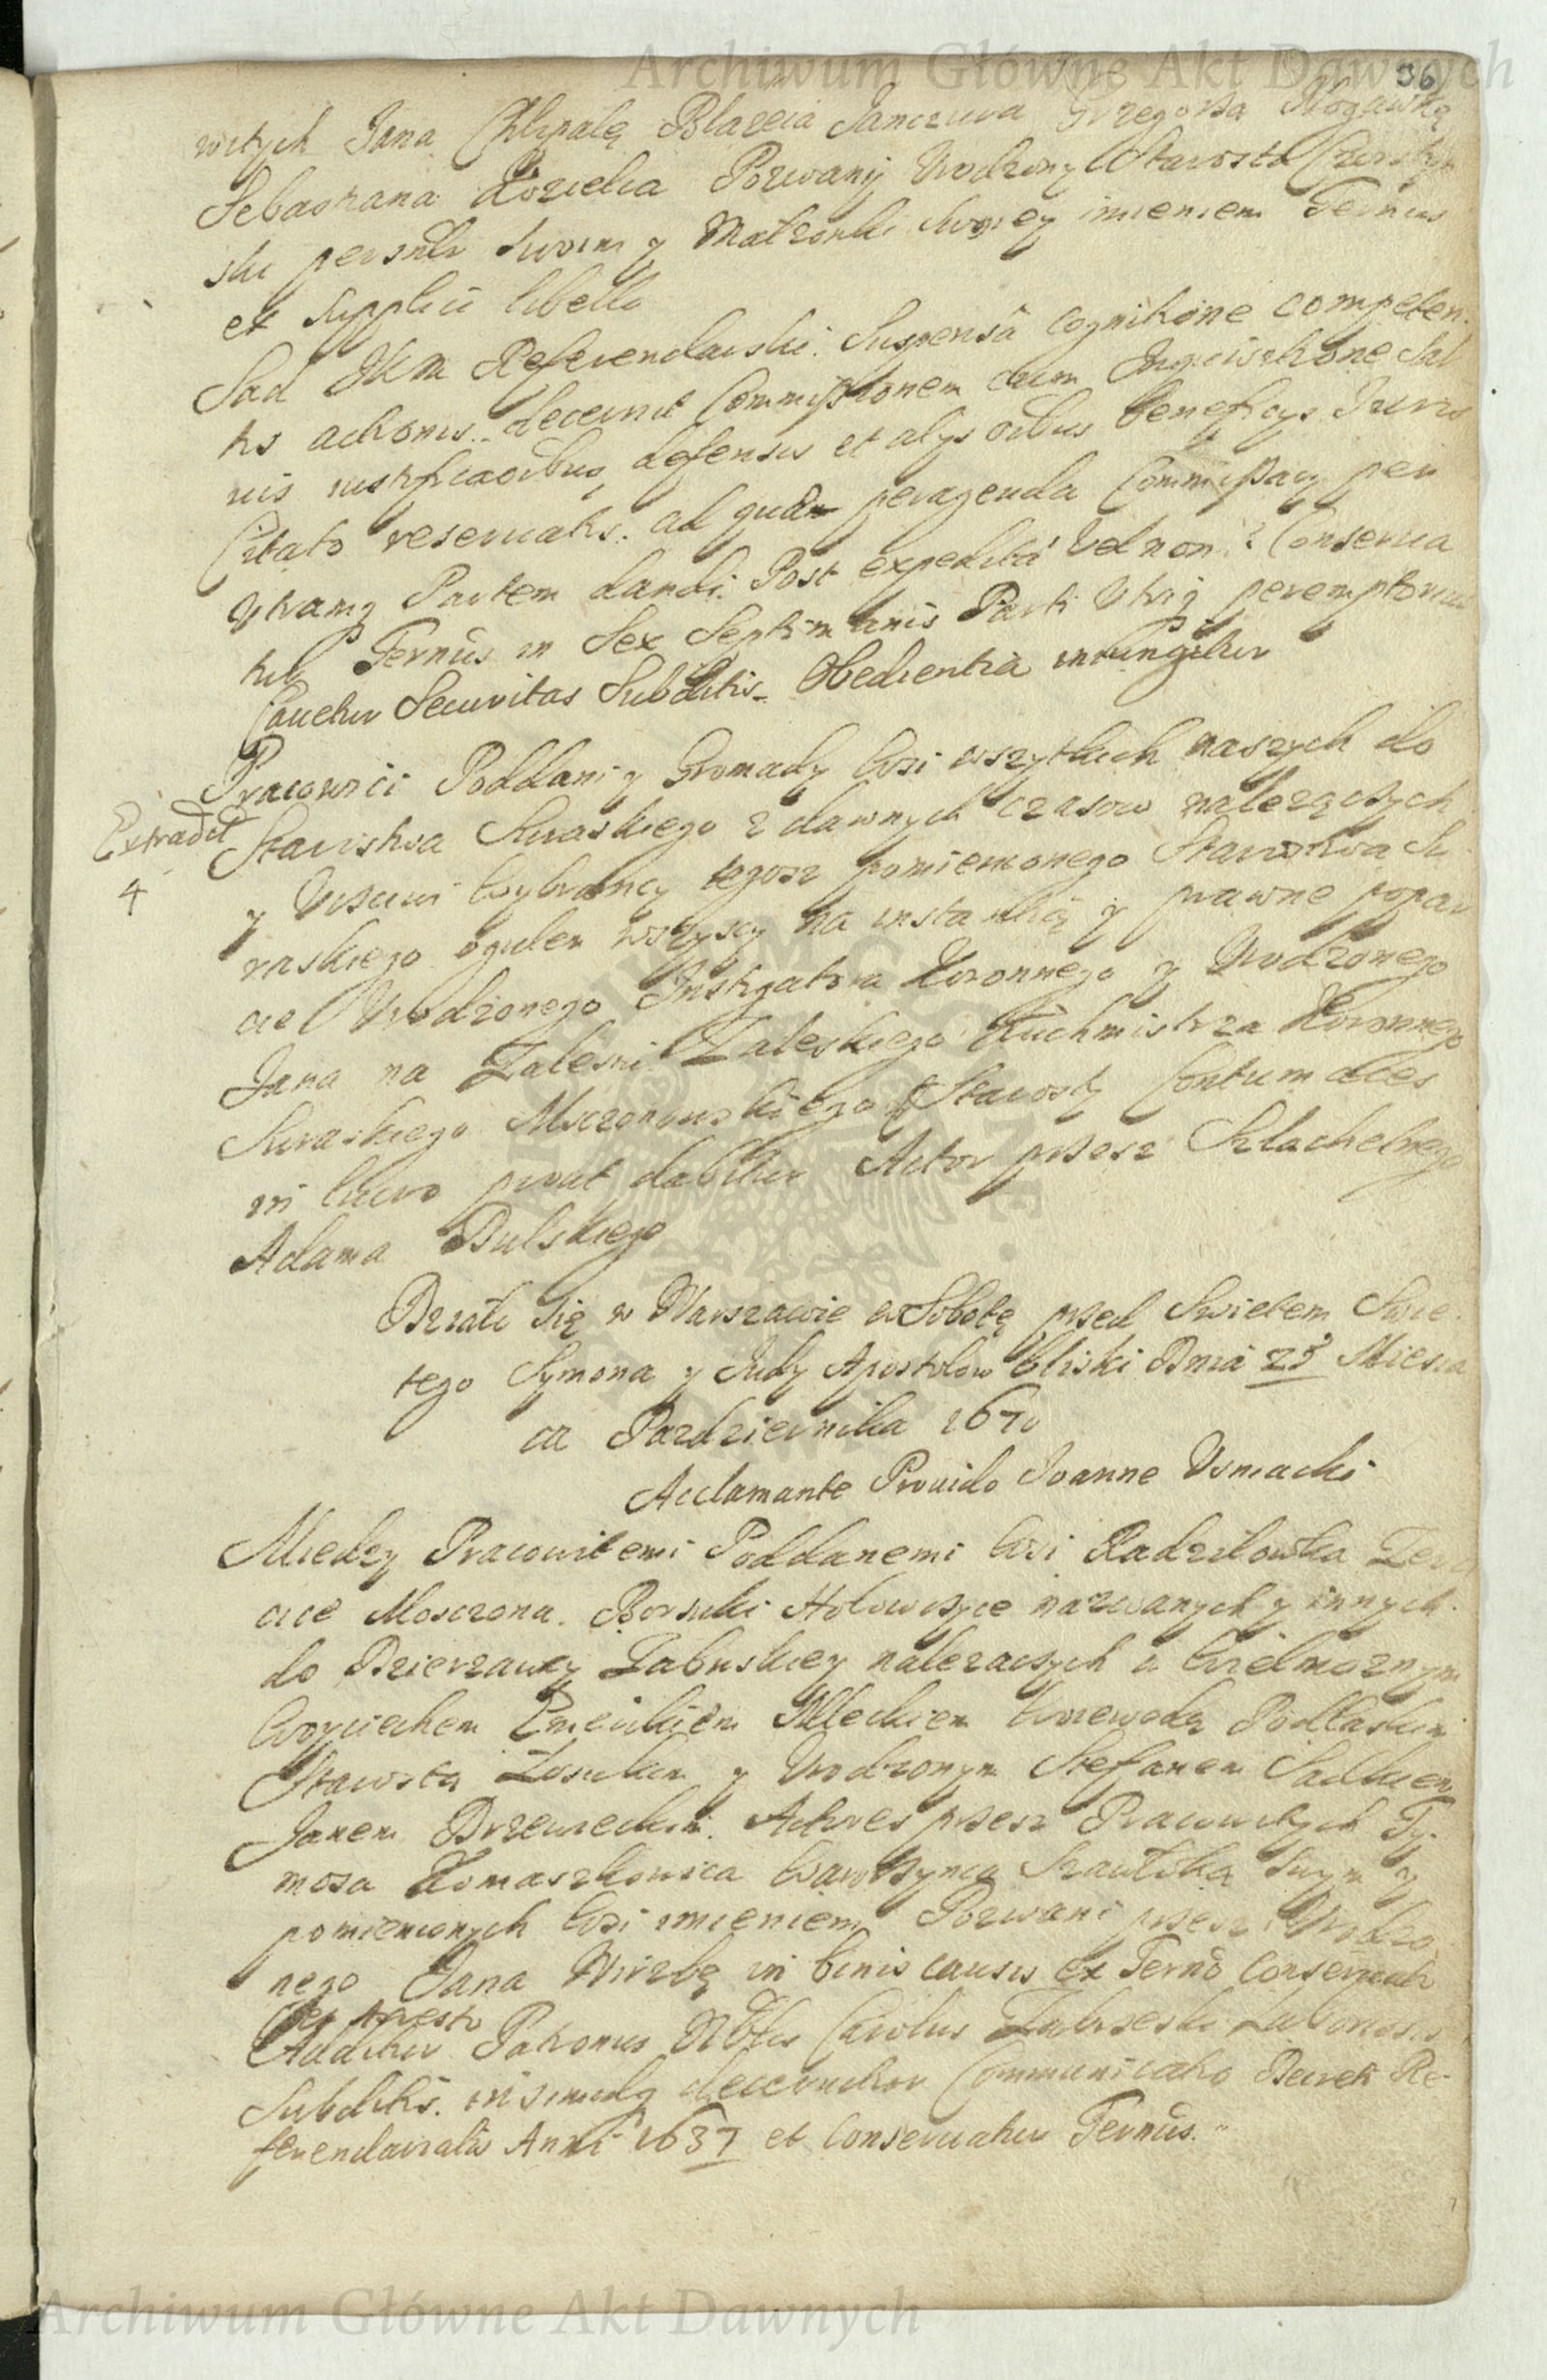 Archiwum Główne Akt Dawnych
36
witych Jana Chlipałę Błażeia Janczura Grzegorza Nogawkę
Sebastiana Kozieła Pozwany Urodzony Starosta Czorsztyn
ski personalr swoim y Małżonki swoiey imieniem Terminus
ex supplici libello
Sąd JKM Referendarski. Suspensa cognitione competen
tis actionis decernit Commissionem cum Inquisitione Sal
vis iustificaoibus defensis et alys oibus beneficys Iuris
Citato reservatis. ad quam peragenda Commissary per
Utramq Partem dandi. Post expedita vel non? Conserva
tur Terminus in Sex Septimanis Parti Utriq peremptorius
Cavetur Securitas Subditis. Obedientia iniungitur
Extradit
4
Pracowici Poddani y Gromady wsi wszytkich naszych do
Starostwa Suraskiego z dawnych czasow należących
y Wybrancy tegosz pomienionego Starostwa Su
raskiego ogulem wszyscy na instantią y prawne popar
cie Urodzonego Instigatora Koronnego y Urodzonego
Jana na Zalesiu Zaleskiego Kuchmistrza Koronnego
Suraskiego Mszczonowskiego Starosty Contumaces
in lucro prout dabitur Actor przesz Szlachetnego
Adama Bulskiego
Działo się w Warszawie w Sobotę przed Swietem Swie
tego Symona y Judy Apostołow bliski Dnia 25 Miesia
ca Pazdziernika 1670
Acclamante Provido Joanne Usniacki
Miedzy Pracowitemi Poddanemi wsi Radziłowka
cice Moszczona. Borsuki Hołowczyce nazwanych y innych
do Dzierzawy Zabuskiey należacych a Wielmoznym
Woyciechem Emerikiem Mleckiem Woiewodą Podlaskim
Starostą Łosickim y Urodzonym Stefanem Sadkiem
Janem Brzewieckim. Actores przesz Pracowitych Ty
mosa Tomaszkowica Wawrzynca Szawłska swym y
pomienionych wsi imieniem Pozwani przesz Urodzo
nego Jana Wirzbę in binis causis ex Termino Conservato
ex Aresto
Additur Patronus Nobilis Carolus Zabrzeski Laboriosis
Subditis. insimulq decernitur Communicatio Decreti Re-
ferendarialis Anni 1637 et Conservatur Terminus.
Archiwum Główne Akt Dawnych